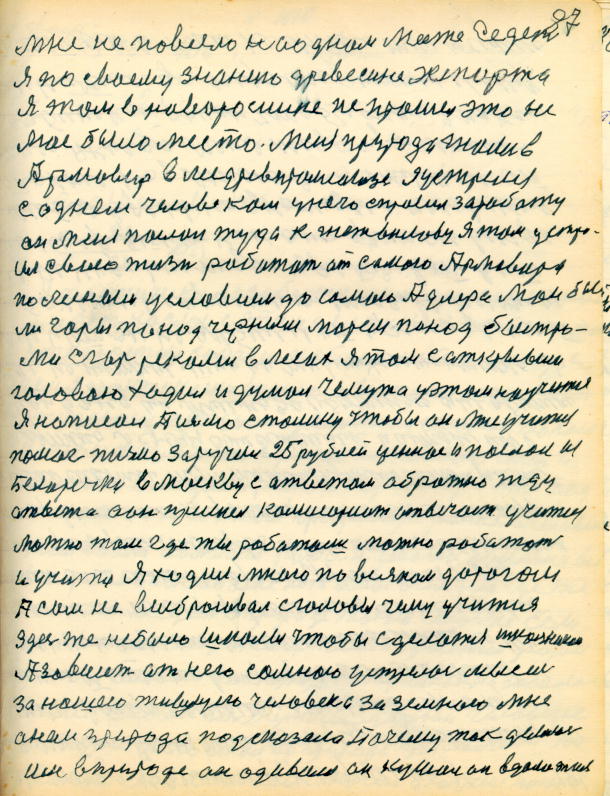 87
мне не повезло на одном месте седеть
я по своему знанею древесина экспорта
я там в новоросиске не прошел это не
мое было место. Меня природа гнала в
Армовир в я устроелся
с однем человеком у него спросил заработу
он меня послал туда к я там устро-
ил свою жизн работат от самого Армовира
по условием до самого Адлера мои были
ли горы понад черным морем понад быстро-
ми реками в лесах я там с аткрытыи
головою ходил и думал чемута уэтом научится
я написал Писмо сталину чтобы он мне учится
помог писмо заручил 25 рублей ценное и послал и
в Москву с ответом обратно жду
ответа а он пришел комисариат отвечает учится
можно там где ты работаеш можно работат
и учится я ходил много по всяком дорогам
А сам не выбросовал с головы чему учится
здес же небыло школы чтобы сделатся школником
А зависит от него самого мысли
за нашего живущего человека за земного мне
о нем природа подсказала Почему так делалос
им в природе он одивался он кушал он